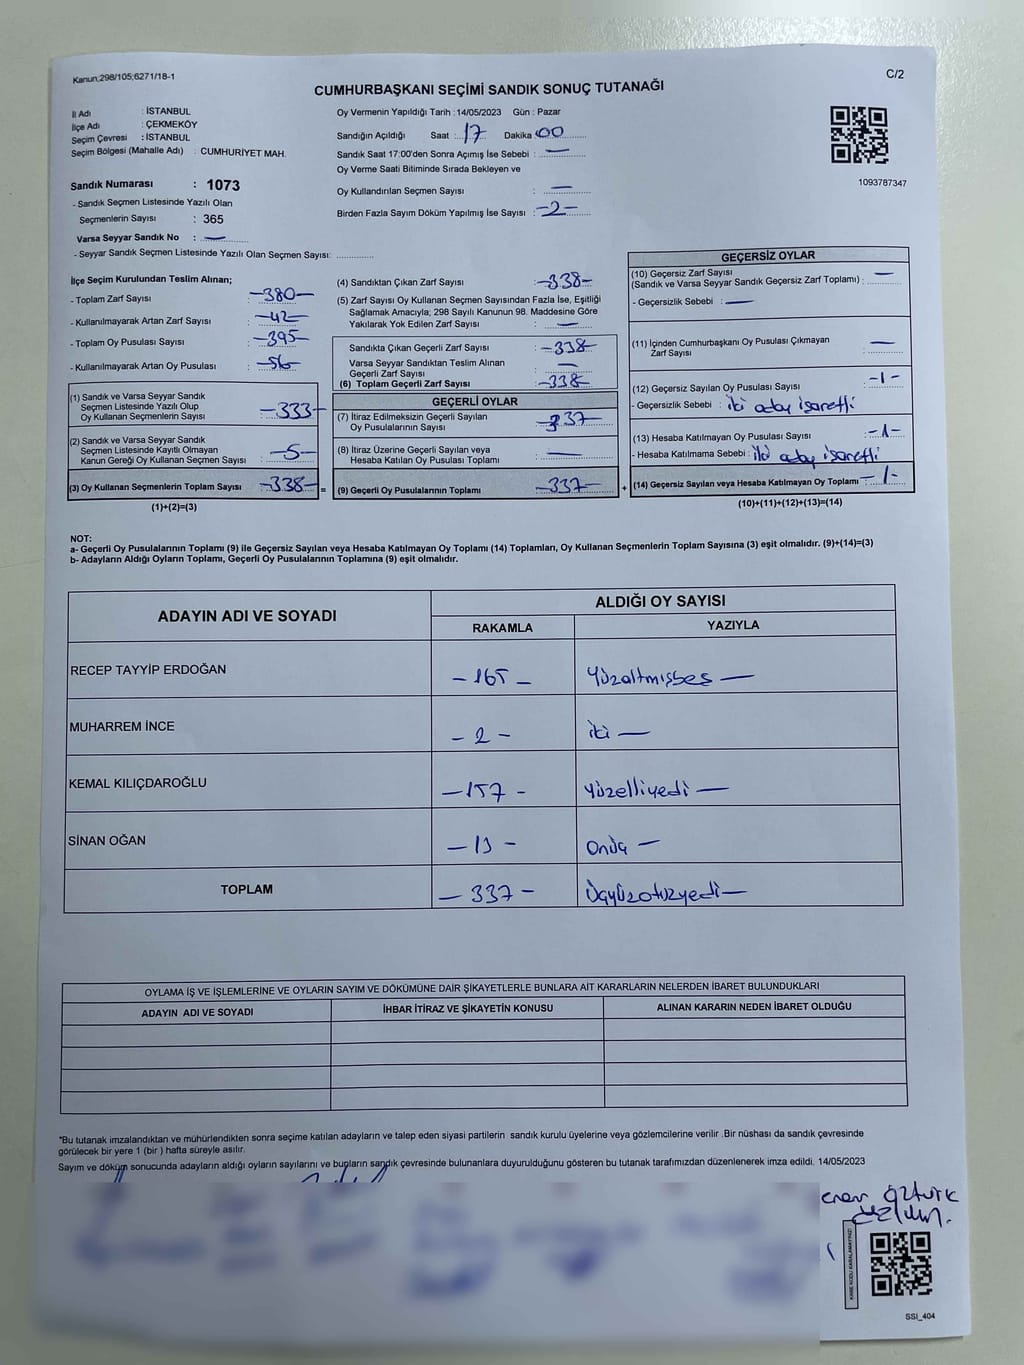 Kanun;298/105;6271/18-1
C/2
CUMHURBAŞKANI SEÇİMİ SANDIK SONUÇ TUTANAĞI
İl Adı : İSTANBUL
İlçe Adı : ÇEKMEKÖY
Seçim Çevresi : İSTANBUL
Seçim Bölgesi (Mahalle Adı) : CUMHURİYET MAH.
Sandık Numarası : 1073
- Sandık Seçmen Listesinde Yazılı Olan
Seçmenlerin Sayısı : 365
Varsa Seyyar Sandık No : —
- Seyyar Sandık Seçmen Listesinde Yazılı Olan Seçmen Sayısı: ..............
Oy Vermenin Yapıldığı Tarih : 14/05/2023 Gün : Pazar
Sandığın Açıldığı Saat : 17 Dakika 00
Sandık Saat 17:00'den Sonra Açımış İse Sebebi : —
Oy Verme Saati Bitiminde Sırada Bekleyen ve
Oy Kullandırılan Seçmen Sayısı : —
Birden Fazla Sayım Döküm Yapılmış İse Sayısı : -2-
1093787347
İlçe Seçim Kurulundan Teslim Alınan;
- Toplam Zarf Sayısı : -380-
- Kullanılmayarak Artan Zarf Sayısı : -42-
- Toplam Oy Pusulası Sayısı : -395-
- Kullanılmayarak Artan Oy Pusulası : -56-
(1) Sandık ve Varsa Seyyar Sandık
Seçmen Listesinde Yazılı Olup
Oy Kullanan Seçmenlerin Sayısı : -333-
(2) Sandık ve Varsa Seyyar Sandık
Seçmen Listesinde Kayıtlı Olmayan
Kanun Gereği Oy Kullanan Seçmen Sayısı : -5-
(3) Oy Kullanan Seçmenlerin Toplam Sayısı : -338- =
(1)+(2)=(3)
(4) Sandıktan Çıkan Zarf Sayısı : -338-
(5) Zarf Sayısı Oy Kullanan Seçmen Sayısından Fazla İse, Eşitliği
Sağlamak Amacıyla; 298 Sayılı Kanunun 98. Maddesine Göre
Yakılarak Yok Edilen Zarf Sayısı : —
Sandıkta Çıkan Geçerli Zarf Sayısı : -338-
Varsa Seyyar Sandıktan Teslim Alınan
Geçerli Zarf Sayısı : —
(6) Toplam Geçerli Zarf Sayısı : -338-
GEÇERLİ OYLAR
(7) İtiraz Edilmeksizin Geçerli Sayılan
Oy Pusulalarının Sayısı : -337-
(8) İtiraz Üzerine Geçerli Sayılan veya
Hesaba Katılan Oy Pusulası Toplamı : —
(9) Geçerli Oy Pusulalarının Toplamı : -337- +
GEÇERSİZ OYLAR
(10) Geçersiz Zarf Sayısı
(Sandık ve Varsa Seyyar Sandık Geçersiz Zarf Toplamı) : —
- Geçersizlik Sebebi : —
(11) İçinden Cumhurbaşkanı Oy Pusulası Çıkmayan
Zarf Sayısı : —
(12) Geçersiz Sayılan Oy Pusulası Sayısı : -1-
- Geçersizlik Sebebi : iki aday işaretli
(13) Hesaba Katılmayan Oy Pusulası Sayısı : -1-
- Hesaba Katılmama Sebebi : iki aday işaretli
(14) Geçersiz Sayılan veya Hesaba Katılmayan Oy Toplamı : -1-
(10)+(11)+(12)+(13)=(14)
NOT:
a- Geçerli Oy Pusulalarının Toplamı (9) ile Geçersiz Sayılan veya Hesaba Katılmayan Oy Toplamı (14) Toplamları, Oy Kullanan Seçmenlerin Toplam Sayısına (3) eşit olmalıdır. (9)+(14)=(3)
b- Adayların Aldığı Oyların Toplamı, Geçerli Oy Pusulalarının Toplamına (9) eşit olmalıdır.
ADAYIN ADI VE SOYADI
ALDIĞI OY SAYISI
RAKAMLA YAZIYLA
RECEP TAYYİP ERDOĞAN - 165 - Yüzaltmışbeş —
MUHARREM İNCE - 2 - iki —
KEMAL KILIÇDAROĞLU - 157 - Yüzelliyedi —
SİNAN OĞAN - 13 - Onüç —
TOPLAM - 337 - Üçyüzotuzyedi —
OYLAMA İŞ VE İŞLEMLERİNE VE OYLARIN SAYIM VE DÖKÜMÜNE DAİR ŞİKAYETLERLE BUNLARA AİT KARARLARIN NELERDEN İBARET BULUNDUKLARI
ADAYIN ADI VE SOYADI İHBAR İTİRAZ VE ŞİKAYETİN KONUSU ALINAN KARARIN NEDEN İBARET OLDUĞU
*Bu tutanak imzalandıktan ve mühürlendikten sonra seçime katılan adayların ve talep eden siyasi partilerin sandık kurulu üyelerine veya gözlemcilerine verilir .Bir nüshası da sandık çevresinde
görülecek bir yere 1 (bir ) hafta süreyle asılır.
Sayım ve döküm sonucunda adayların aldığı oyların sayılarını ve bunların sandık çevresinde bulunanlara duyurulduğunu gösteren bu tutanak tarafımızdan düzenlenerek imza edildi. 14/05/2023
öztürk
KARE KODU KARALAMAYINIZ!
SSI_404